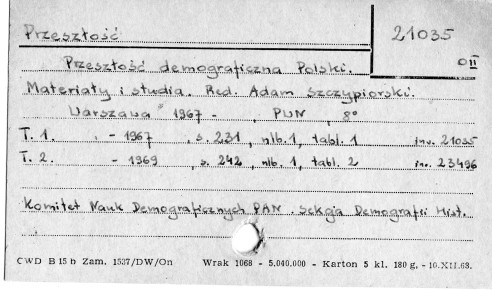 Przeszłość 21035
Przeszłość demograficzna Polski. O II
Materiały i studia. Red. Adam Szczypiorski.
Warszawa 1967 - , PWN , 8°
T. 1. - 1967 , s. 231 , nlb. 1, tabl. 1 inw. 21035
T. 2. - 1969 , s. 242 , nlb. 1, tabl. 2 inw. 23496
Komitet Nauk Demograficznych PAN. Sekcja Demografii Hist.
CWD B 15 b Zam. 1537/DW/On Wrak 1068 - 5.040.000 - Karton 5 kl. 180 g. - 10.XII.68.